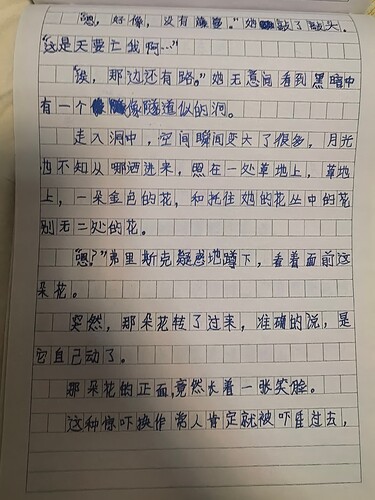 “嗯，好像，没有嫌疑。”她敲了敲头。
“这是天要亡我啊…”
“诶，那边还有路。”她无意间看到黑暗中
有一个像隧道似的洞。
走入洞中，空间瞬间变大了很多，月光
也不知从哪洒进来，照在一处草地上，草地
上，一朵金色的花，和托住她的花丛中的花
别无二处的花。
“嗯？”弗里斯克疑惑地蹲下，看着面前这
朵花。
突然，那朵花转了过来，准确的说，是
它自己动了。
那朵花的正面，竟然长着一张笑脸。
这种惊吓换作常人肯定就被吓昏过去，